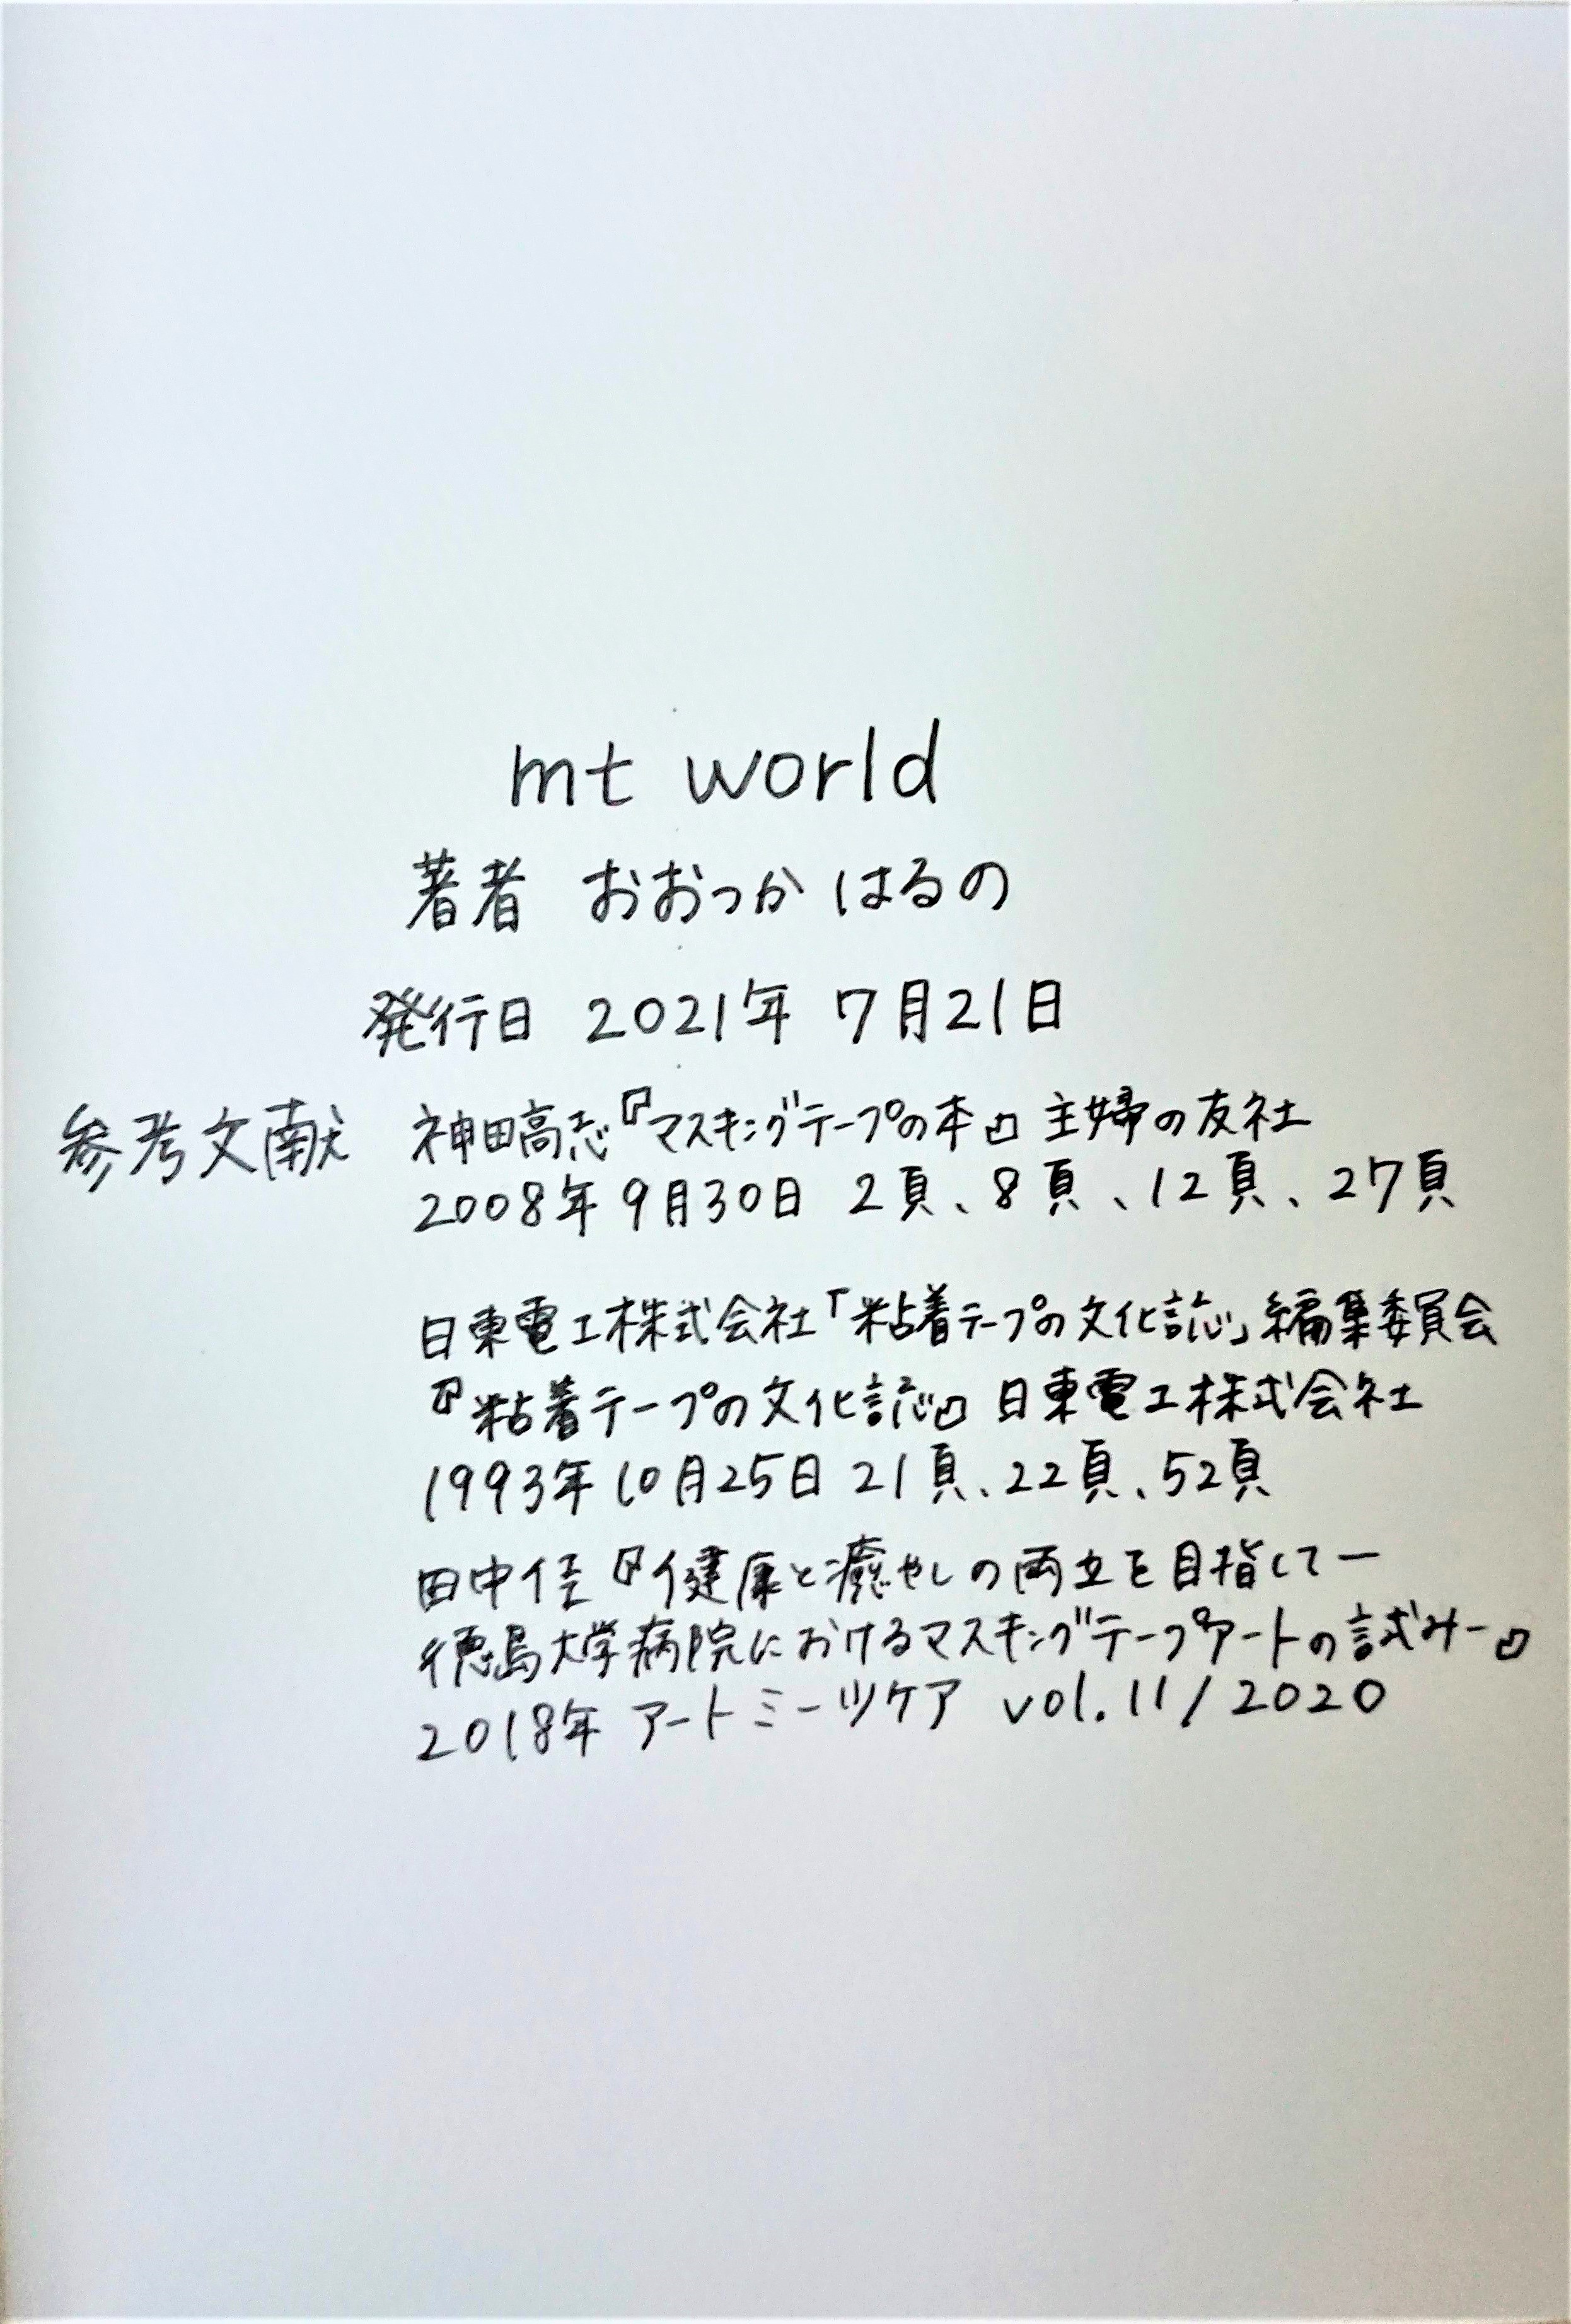 mt world
著者 おおつか はるの
発行日 2021年 7月21日
参考文献 神田高志『マスキングテープの本』主婦の友社
2008年9月30日 2頁、8頁、12頁、27頁
日東電工株式会社「粘着テープの文化誌」編集委員会
『粘着テープの文化誌』日東電工株式会社
1993年10月25日 21頁、22頁、52頁
田中佳『健康と癒やしの両立を目指してー
徳島大学病院におけるマスキングテープアートの試みー』
2018年 アートミーツケア vol.11/2020